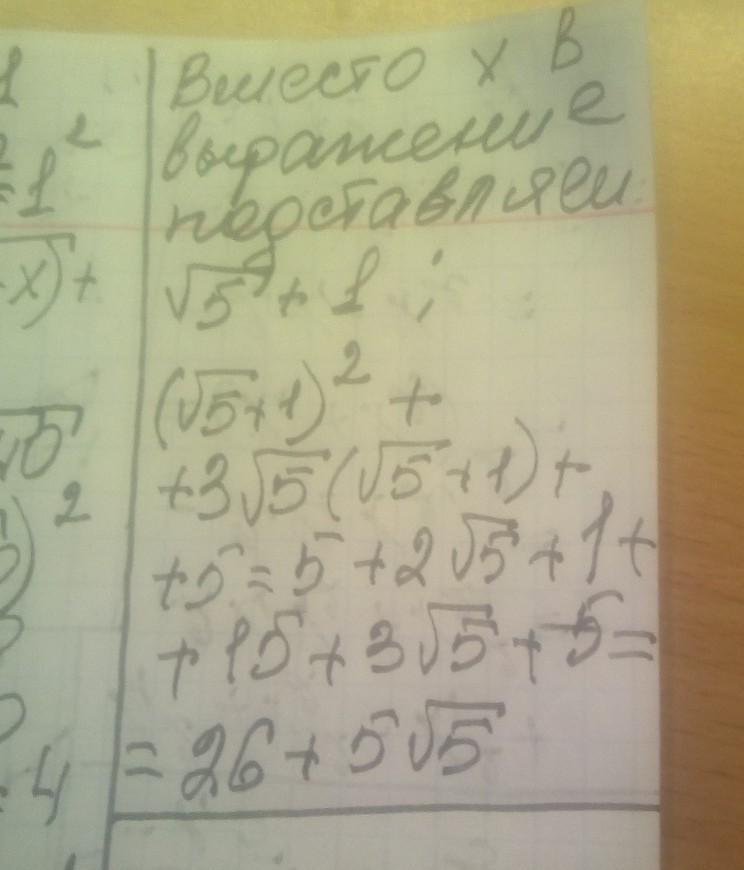 1
2
=1²
x)+
√5
)²
4
Вместо x в
выражение
подставляем
√5 + 1 ;
(√5+1)² +
+3√5(√5+1)+
+5=5+2√5+1+
+15+3√5+5=
=26+5√5